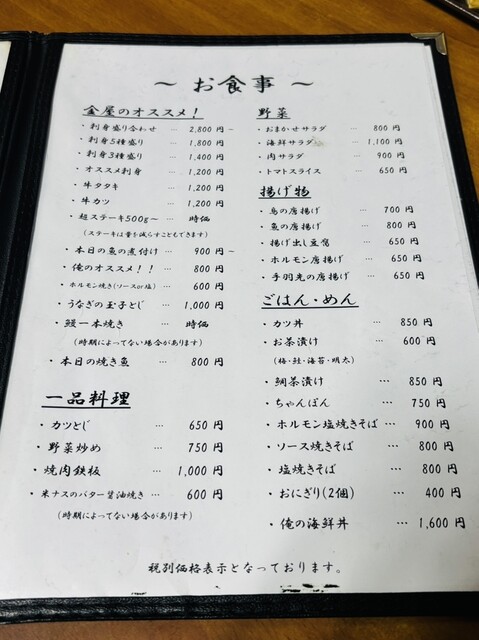 ～ お食事 ～
金屋のオススメ！
・刺身盛り合わせ … 2,800円～
・刺身5種盛り … 1,800円
・刺身3種盛り … 1,400円
・オススメ刺身 … 1,200円
・牛タタキ … 1,200円
・牛カツ … 1,200円
・超ステーキ500g～ … 時価
(ステーキは量を減らすこともできます)
・本日の魚の煮付け … 900円～
・俺のオススメ！！ … 800円
・ホルモン焼き(ソースor塩) … 600円
・うなぎの玉子とじ … 1,000円
・鰻一本焼き … 時価
(時期によってない場合があります)
・本日の焼き魚 … 800円
一品料理
・カツとじ … 650円
・野菜炒め … 750円
・焼肉鉄板 … 1,000円
・米ナスのバター醤油焼き … 600円
(時期によってない場合があります)
野菜
・おまかせサラダ … 800円
・海鮮サラダ … 1,100円
・肉サラダ … 900円
・トマトスライス … 650円
揚げ物
・鳥の唐揚げ … 700円
・魚の唐揚げ … 800円
・揚げ出し豆腐 … 650円
・ホルモン唐揚げ … 650円
・手羽先の唐揚げ … 650円
ごはん・めん
・カツ丼 … 850円
・お茶漬け … 600円
(梅・鮭・海苔・明太)
・鯛茶漬け … 850円
・ちゃんぽん … 750円
・ホルモン塩焼きそば … 900円
・ソース焼きそば … 800円
・塩焼きそば … 800円
・おにぎり(2個) … 400円
・俺の海鮮丼 … 1,600円
税別価格表示となっております。